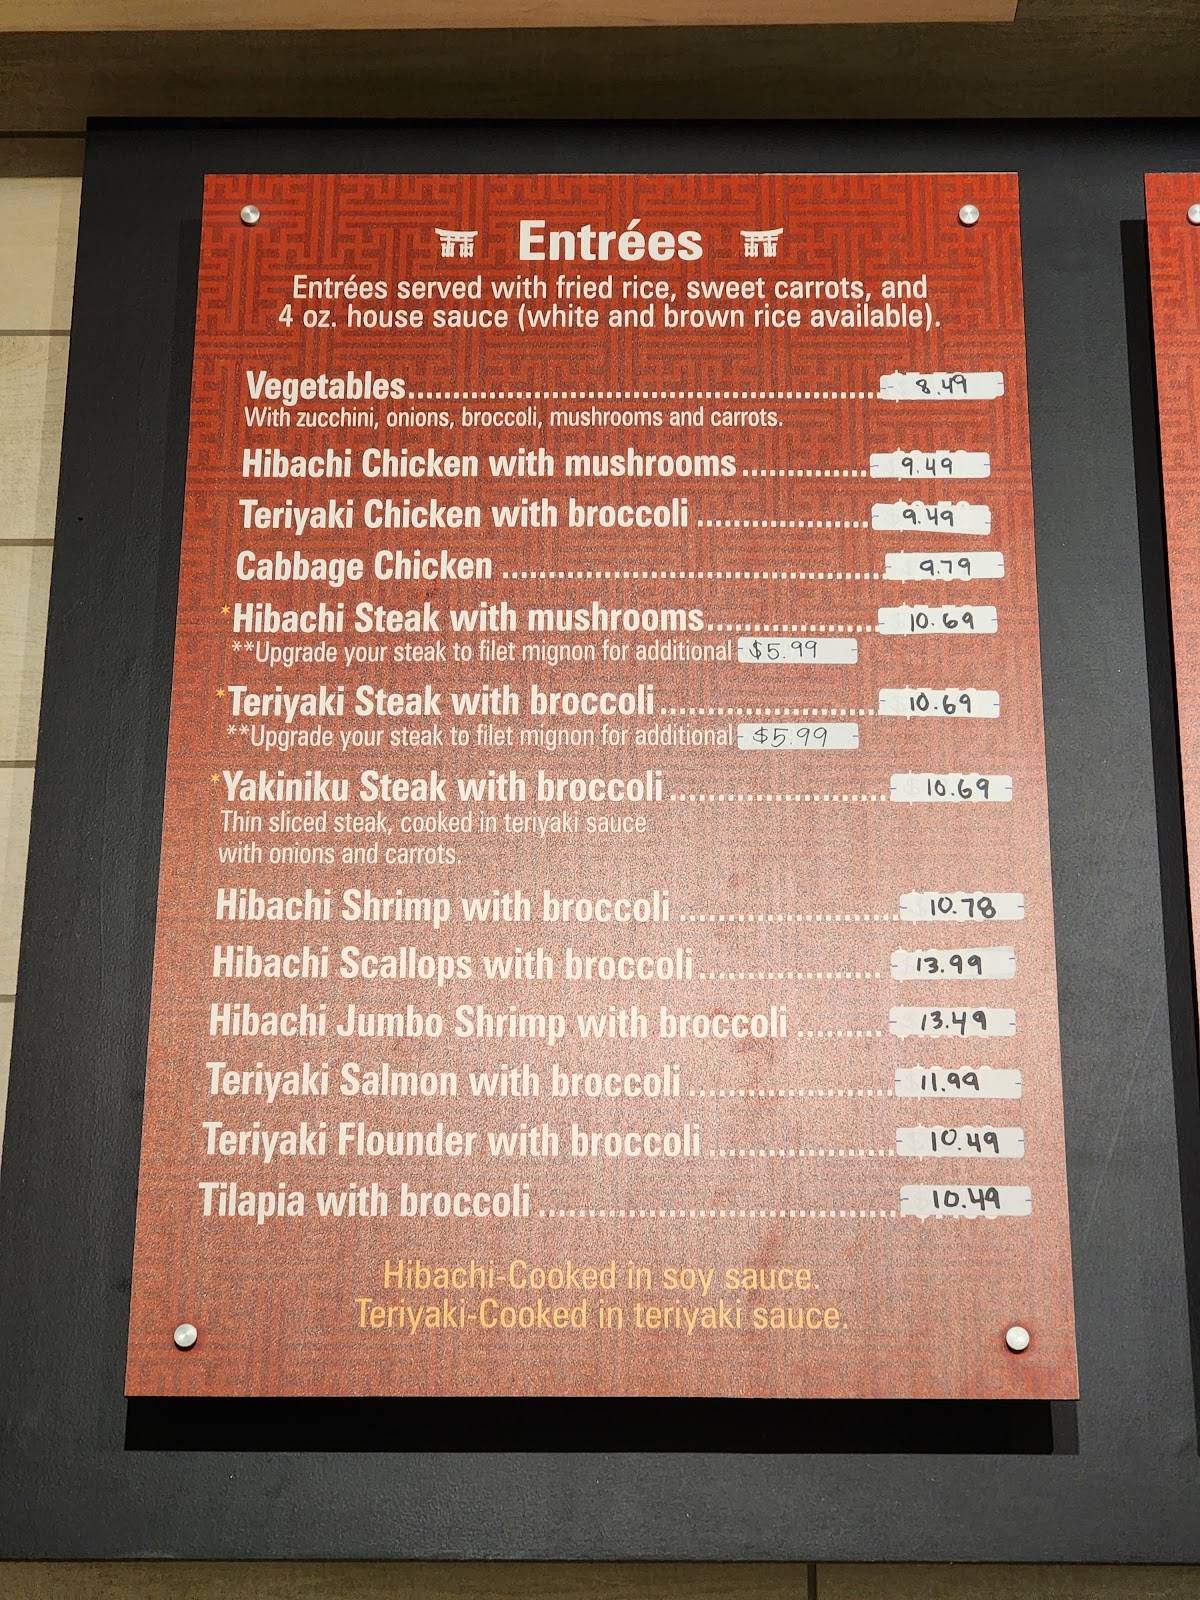 Entrées
Entrées served with fried rice, sweet carrots, and
4 oz. house sauce (white and brown rice available).
Vegetables................................................................ 8.49
With zucchini, onions, broccoli, mushrooms and carrots.
Hibachi Chicken with mushrooms................. 9.49
Teriyaki Chicken with broccoli........................ 9.49
Cabbage Chicken..................................................... 9.79
*Hibachi Steak with mushrooms....................... 10.69
**Upgrade your steak to filet mignon for additional $5.99
*Teriyaki Steak with broccoli.............................. 10.69
**Upgrade your steak to filet mignon for additional $5.99
*Yakiniku Steak with broccoli............................. 10.69
Thin sliced steak, cooked in teriyaki sauce
with onions and carrots.
Hibachi Shrimp with broccoli............................ 10.78
Hibachi Scallops with broccoli........................ 13.99
Hibachi Jumbo Shrimp with broccoli......... 13.49
Teriyaki Salmon with broccoli.......................... 11.99
Teriyaki Flounder with broccoli........................ 10.49
Tilapia with broccoli.............................................. 10.49
Hibachi-Cooked in soy sauce.
Teriyaki-Cooked in teriyaki sauce.